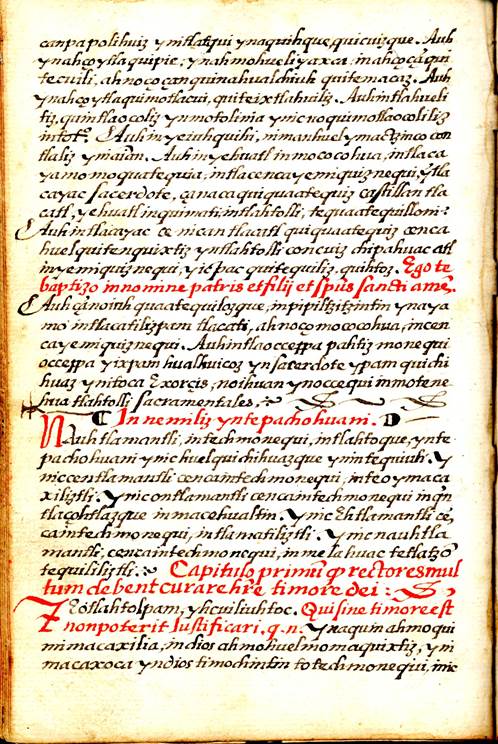 canpa polihuiz yn itlatqui ynaquihque, quicuizque. Auh
ynahço ytla quipie, ynahmo huel iyaxca, inahço çaqui
tecuili, ahnoço çan quinahualchiuh quitemacaz. Auh
ynahço ytla quimotlacui, quiteixtlahuiliz. Auh intlahueli
tiz, quintlaocoliz ynmotolinia ynic no quimotlaocoliliz
in totº. Auh in ye iuhquihi, niman huel ymactzinco can
tlaliz ymaian. Auh in yehuatl in mococohua, intlaca
yamo moquatequia, intlacenca ye miquiznequi, yntla
cayac sacerdote, çanaca quiquaatequiz castillan tla
catl, yehuatl inquimati, intlahtolli, tequaatequilloni:
Auh intlacayac ce nican tlacatl quiquaatequiz cenca
huel quitenquixtiz yntlahtolli concuiz chipahuac atl
in ye miquiznequi, yicpac quitequiliz, quihtoz. Ego te
baptizo in nomine patris et filij et spũs sancti amẽ.
Auh ça no iuh quaatequilozque, in pipiltzitzintin ynaya
mo intlacatilizpam tlacati, ahnoço mococohua, incen
ca ye miquiznequi. Auh intla occeppa patitiz monequi
occeppa yixpam hualhuicoz yn sacerdote ypam quichi
huaz ynitoca Exorcis, noihuan ynoccequi inmotene
hua tlahtolli sacramentales.
In nemiliz yn tepachohuani.
Nauhtlamantli, intech monequi, in tlahtoque, ynte
pachohuani ynic huel quichihuazque ynintequiuh. Y
nic centlamantli cenca intech monequi, inteoymaca
xiliztli. Ynic ontlamantli cenca intech monequi inqn
tlaçohtlazque in macehualtin. Ynic ẽtlamantli cẽ
ca intech monequi, intlamatiliztli. Ynic nauhtla
mantli, cenca intech monequi, inmelahuac tetlatzõ
tequililiztli. Capitulo primũ qp rectores mul
tum debent curare hr̃e timore dei:
Teotlahtolpam, yhcuiliuhtoc. Qui sine timore est
non poterit Justificari. q. n. Ynaquin ahmo qui
mimacaxilia, in dios ahmo huel momaquixtiz, yn i
macaxoca yn dios timochintin totech monequi, inic